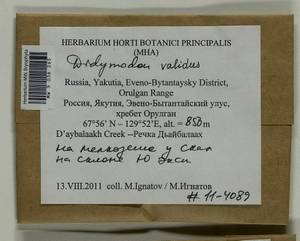 HERBARIUM HORTI BOTANICI PRINCIPALIS
(MHA)
Didymodon validus
Russia, Yakutia, Eveno-Bytantaysky District,
Orulgan Range
Россия, Якутия, Эвено-Бытантайский улус,
хребет Орулган
67°56' N – 129°52'E, alt. = 850 m
D'aybalaakh Creek --Речка Дьайбалаах
на мелкоземе у скал
на склоне Ю эксп.
13.VIII.2011 coll. M.Ignatov / М.Игнатов
# 11-4089